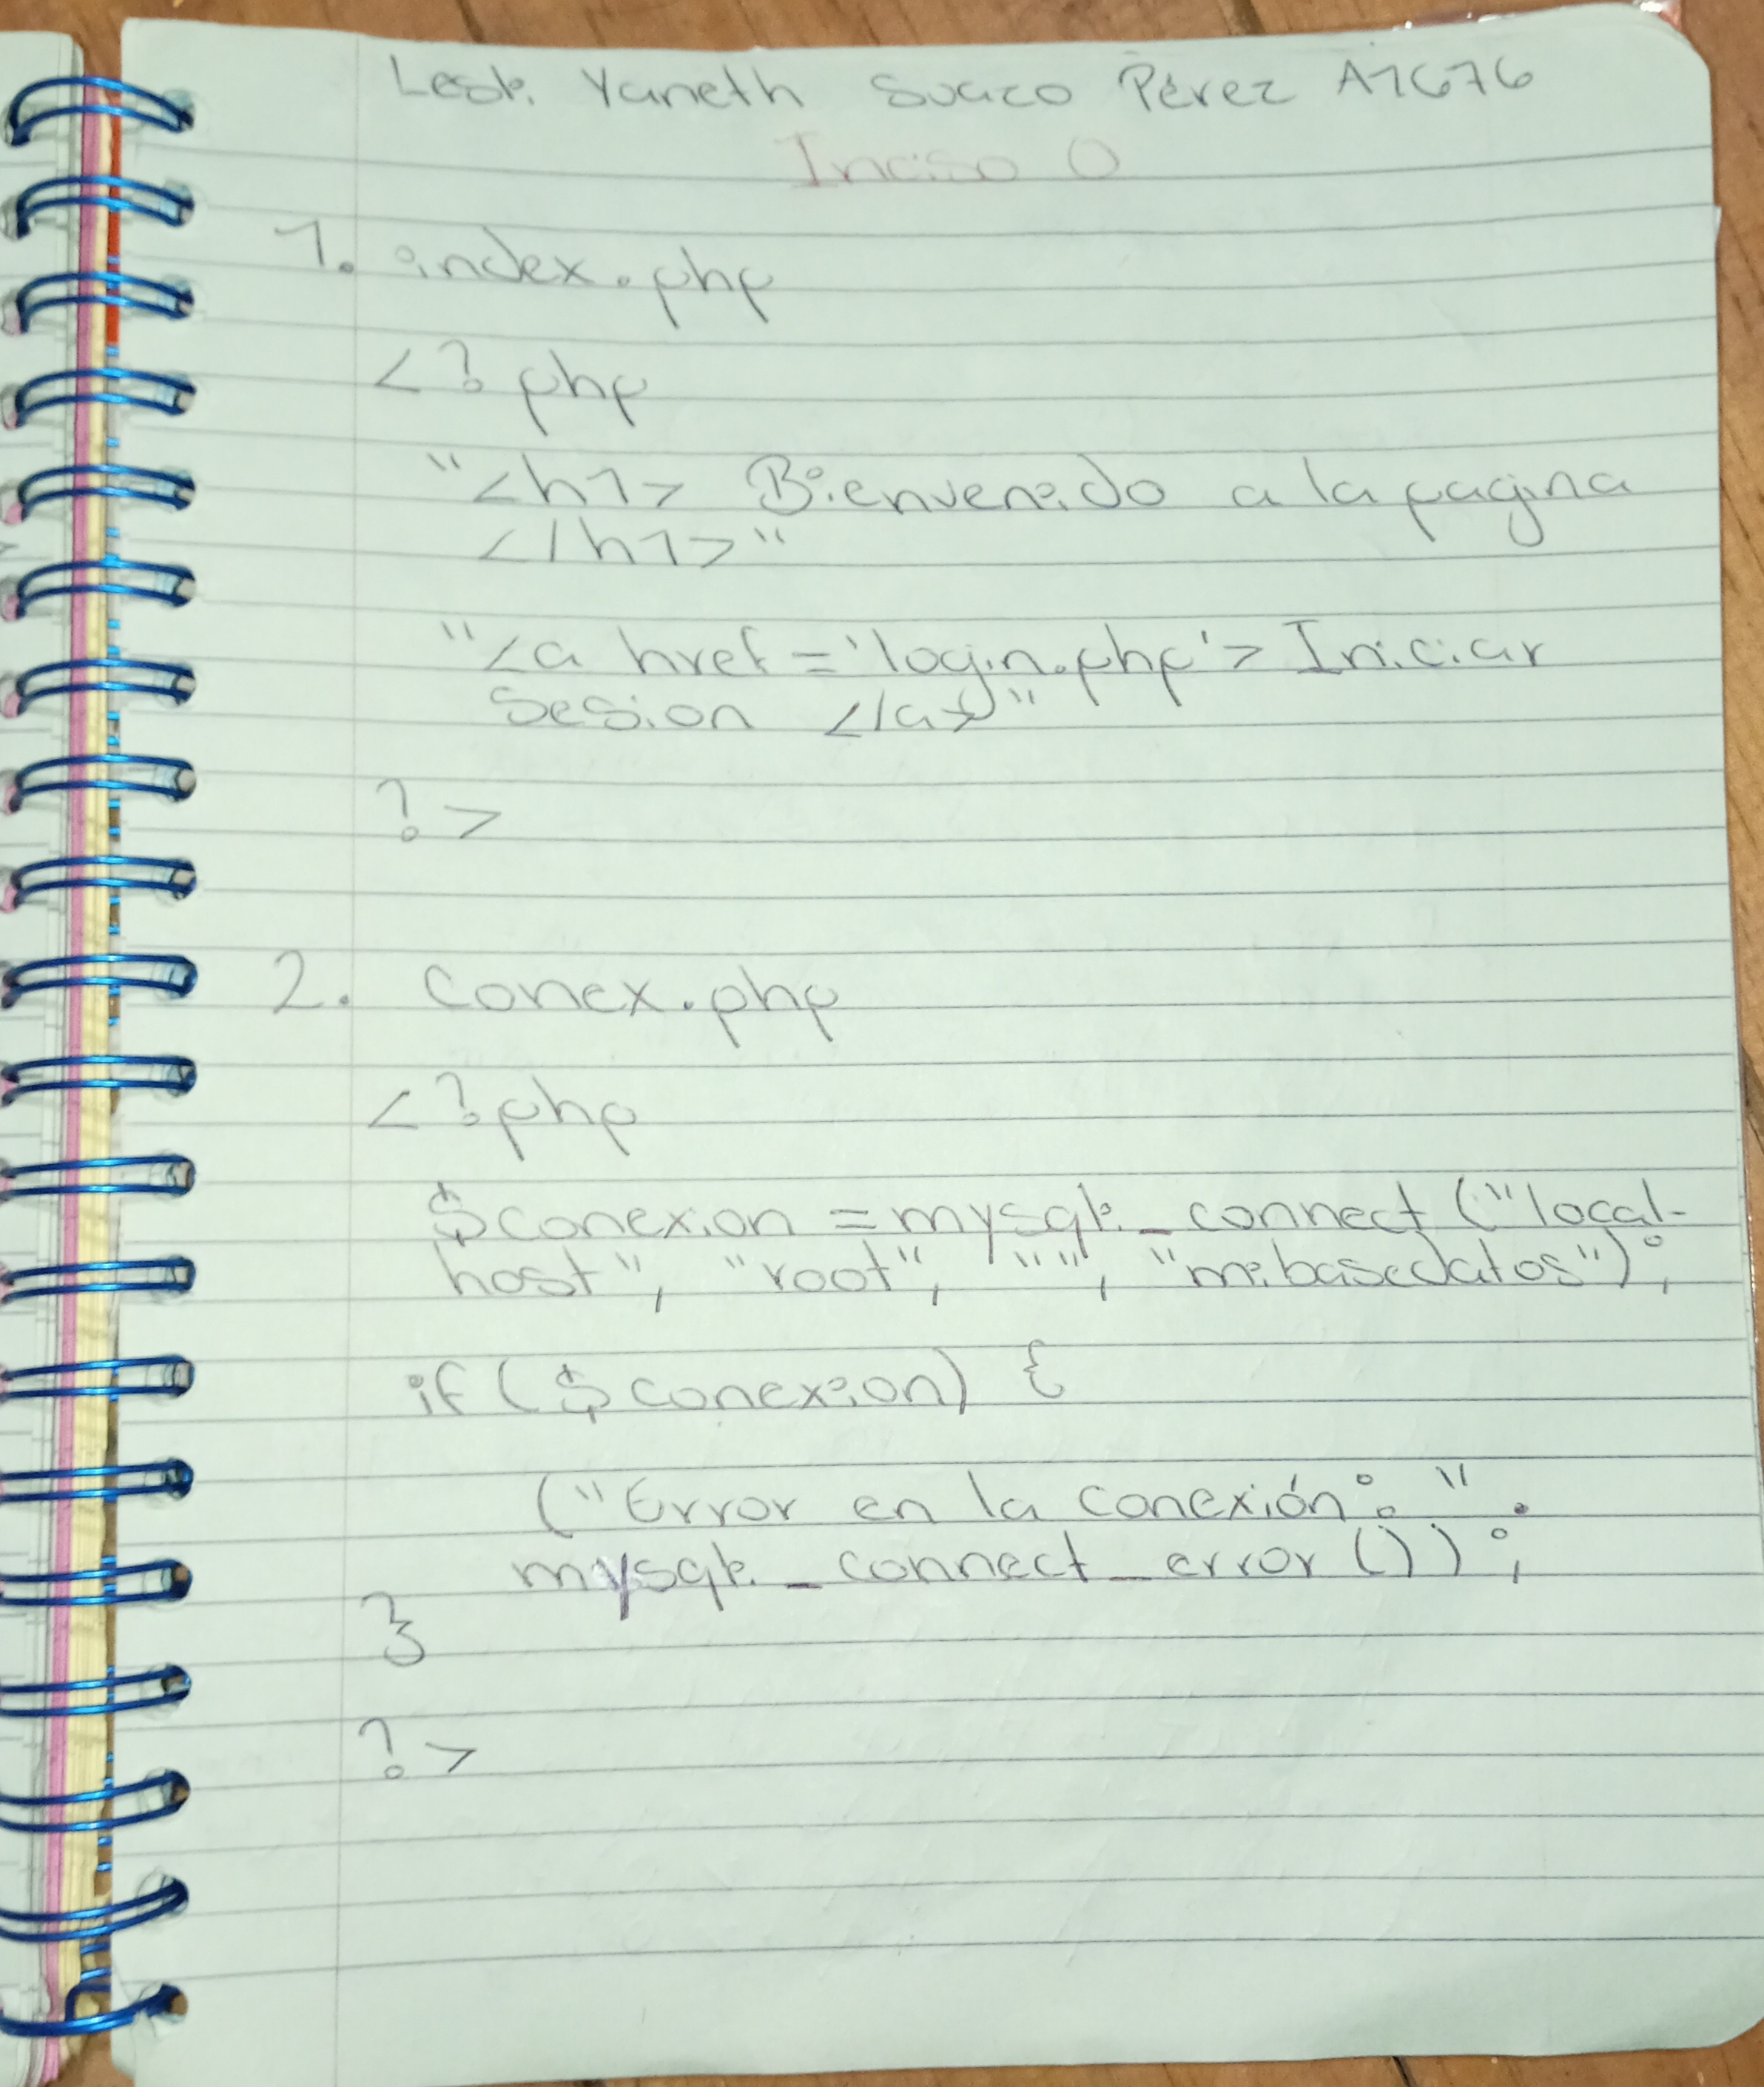 Lesli Yaneth Suazo Pérez A1676
Inciso O
1. index.php
<?php
"<h1> Bienvenido a la pagina
</h1>"
"<a href='login.php'> Iniciar
Sesion </a>"
?>
2. Conex.php
<?php
$conexion = mysqli_connect ("local-
host", "root", "", "mibasedatos");
if ($conexion) {
("Error en la conexión: " .
mysqli_connect_error());
}
?>